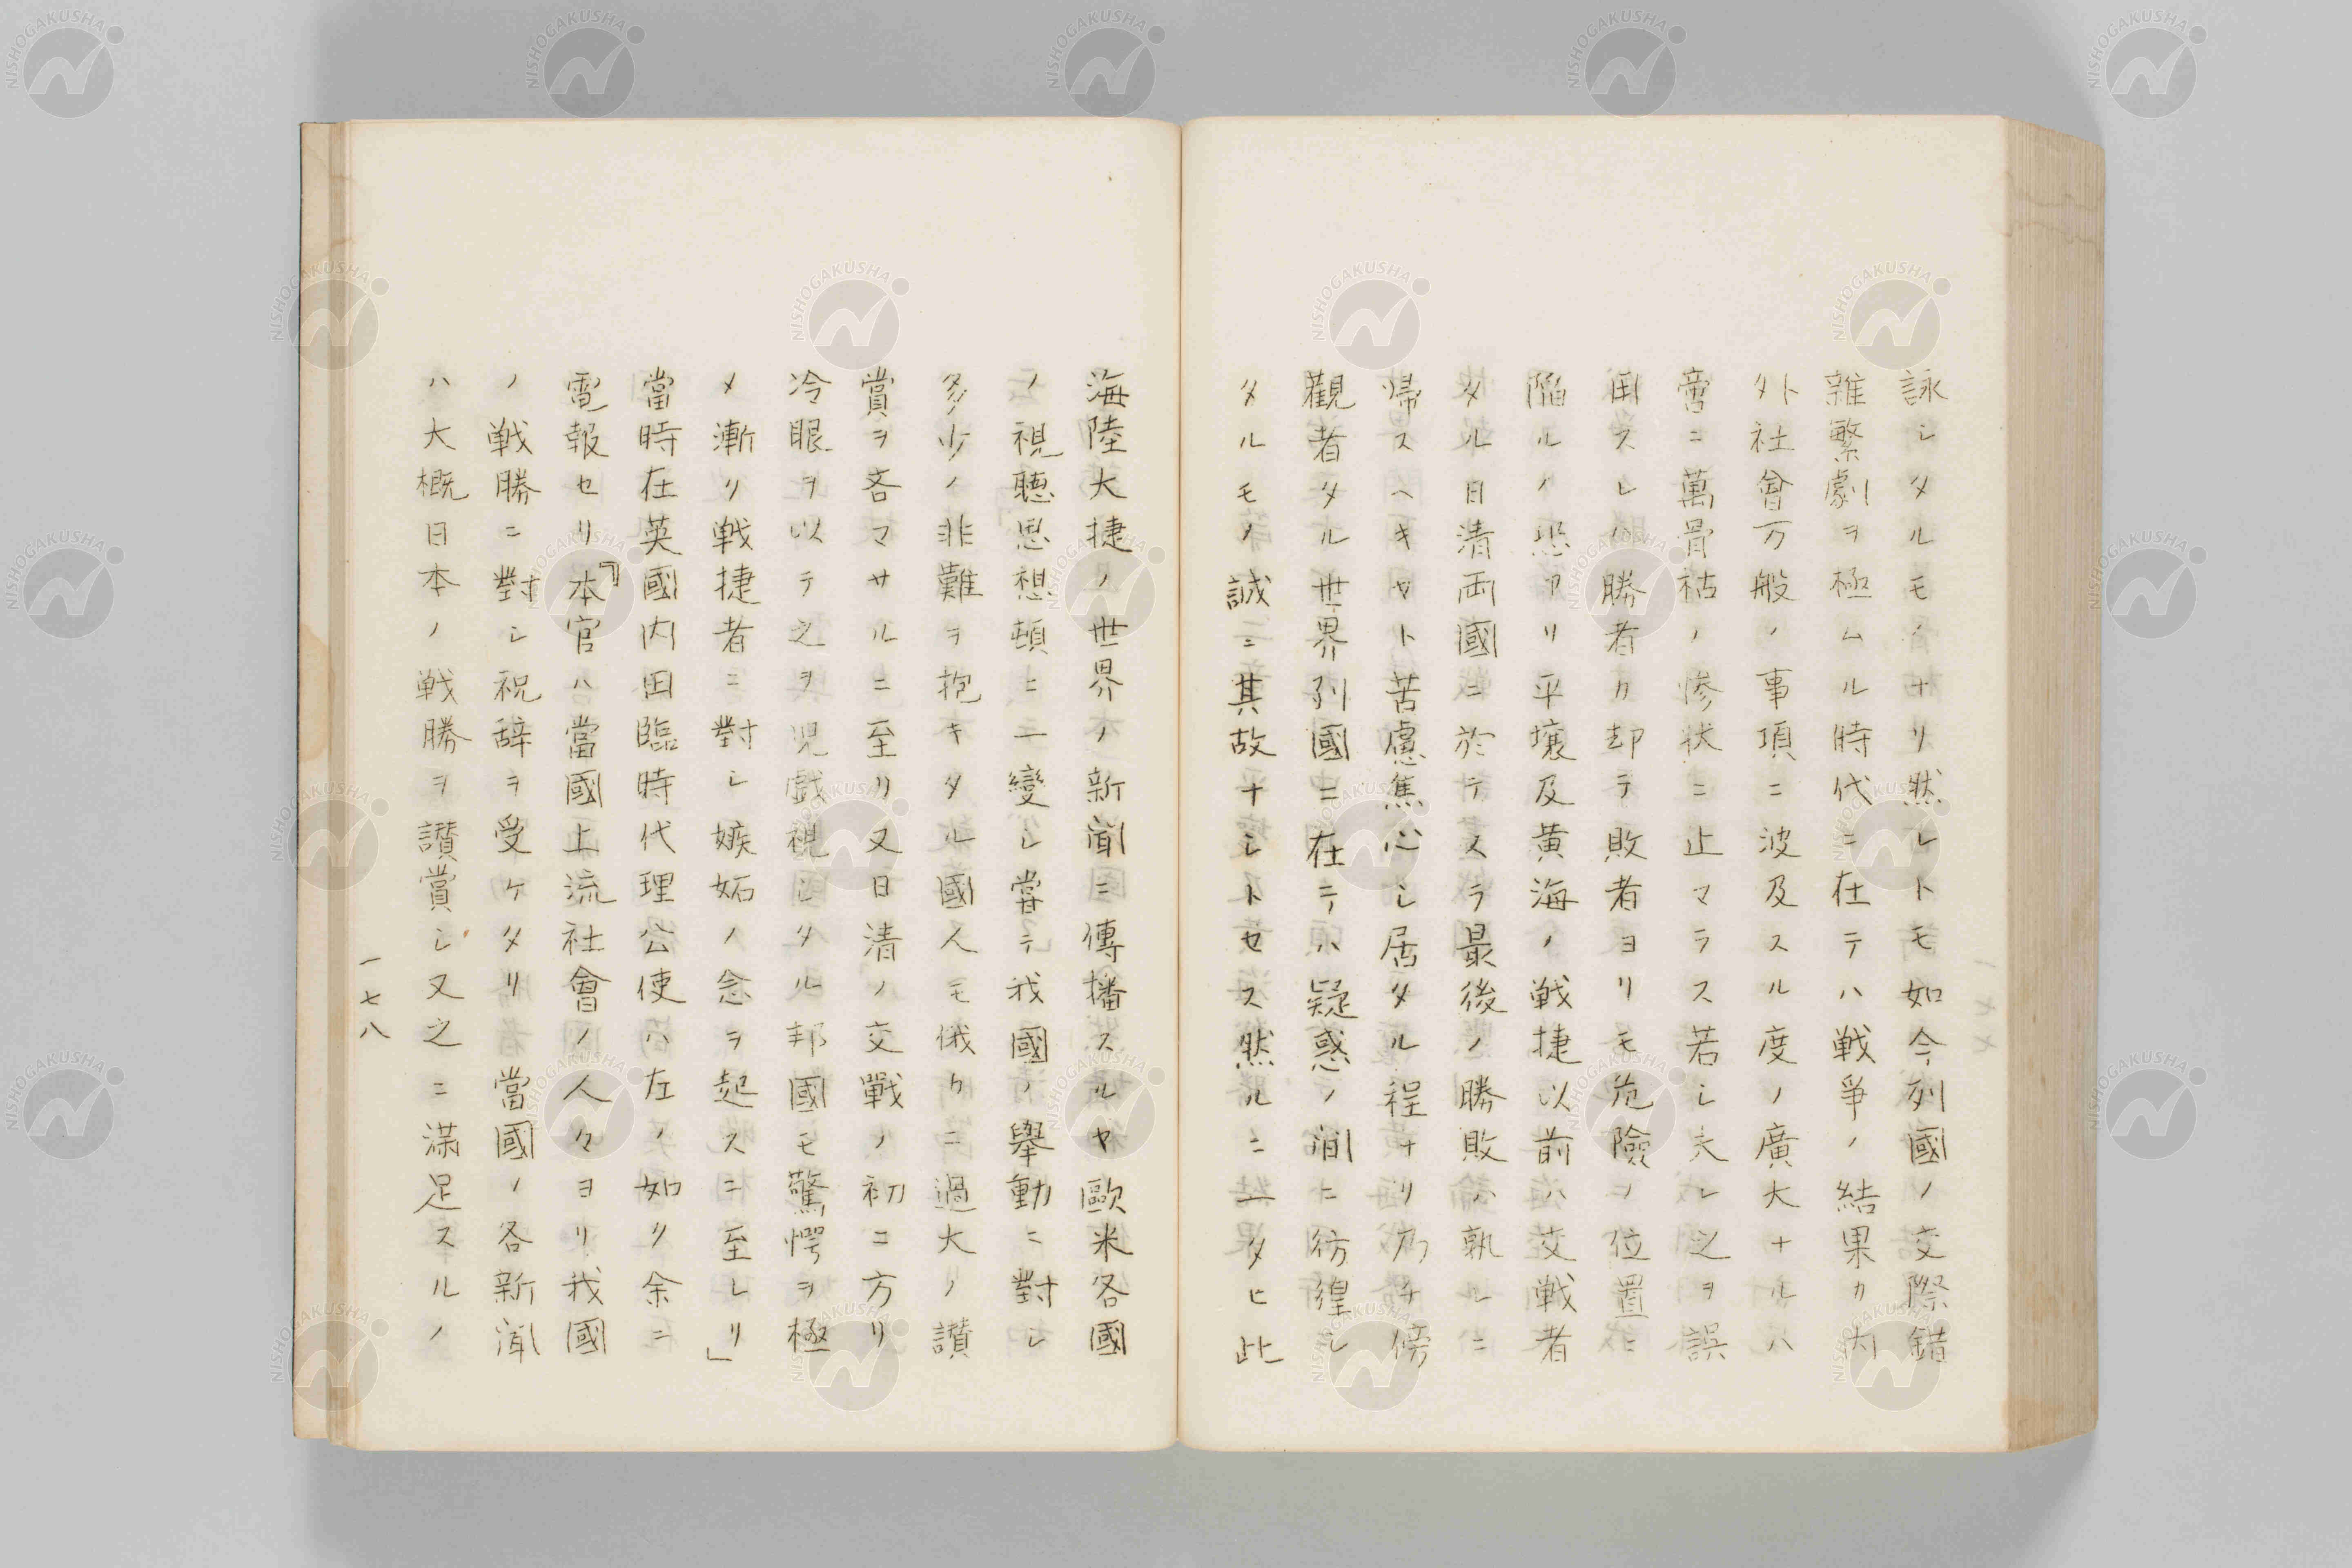 詠シタルモノナリ然レトモ如今列國ノ交際錯
雜繁劇ヲ極ムル時代ニ在テハ戦爭ノ結果カ内
外社會万般ノ事項ニ波及スル度ノ廣大ナルハ
啻ニ萬骨枯ノ惨状ニ止マラス若シ夫レ之ヲ誤
用スレハ勝者カ却テ敗者ヨリモ危險ノ位置ニ
陥ルノ恐アリ平壌及黄海ノ戦捷以前ハ交戦者
タル日清両國ニ於テスラ最後ノ勝敗ハ孰レニ
帰スヘキヤト苦慮焦心シ居タル程ナリ乃チ傍
觀者タル世界列國ニ在テハ疑惑ノ間ニ彷徨シ
タルモノ誠ニ其故ナシトセス然ルニ一タヒ此
海陸大捷ノ世界ノ新聞ニ傳播スルヤ歐米各國
ノ視聴思想頓ニ一變シ嘗テ我國ノ舉動ニ對シ
多少ノ非難ヲ抱キタル國人モ俄カニ過大ノ讃
賞ヲ吝マサルニ至リ又日清ノ交戰ノ初ニ方リ
冷眼ヲ以テ之ヲ児戯視シタル邦國モ驚愕ヲ極
メ漸リ戦捷者ニ對シ嫉妬ノ念ヲ起スニ至レリ」
當時在英國内田臨時代理公使ハ左ノ如ク余ニ
電報セリ「本官ハ當國上流社會ノ人々ヨリ我國
ノ戦勝ニ對シ祝辞ヲ受ケタリ當國ノ各新聞
ハ大概日本ノ戦勝ヲ讃賞シ又之ニ満足スルノ
一七八
NISHOGAKUSHA